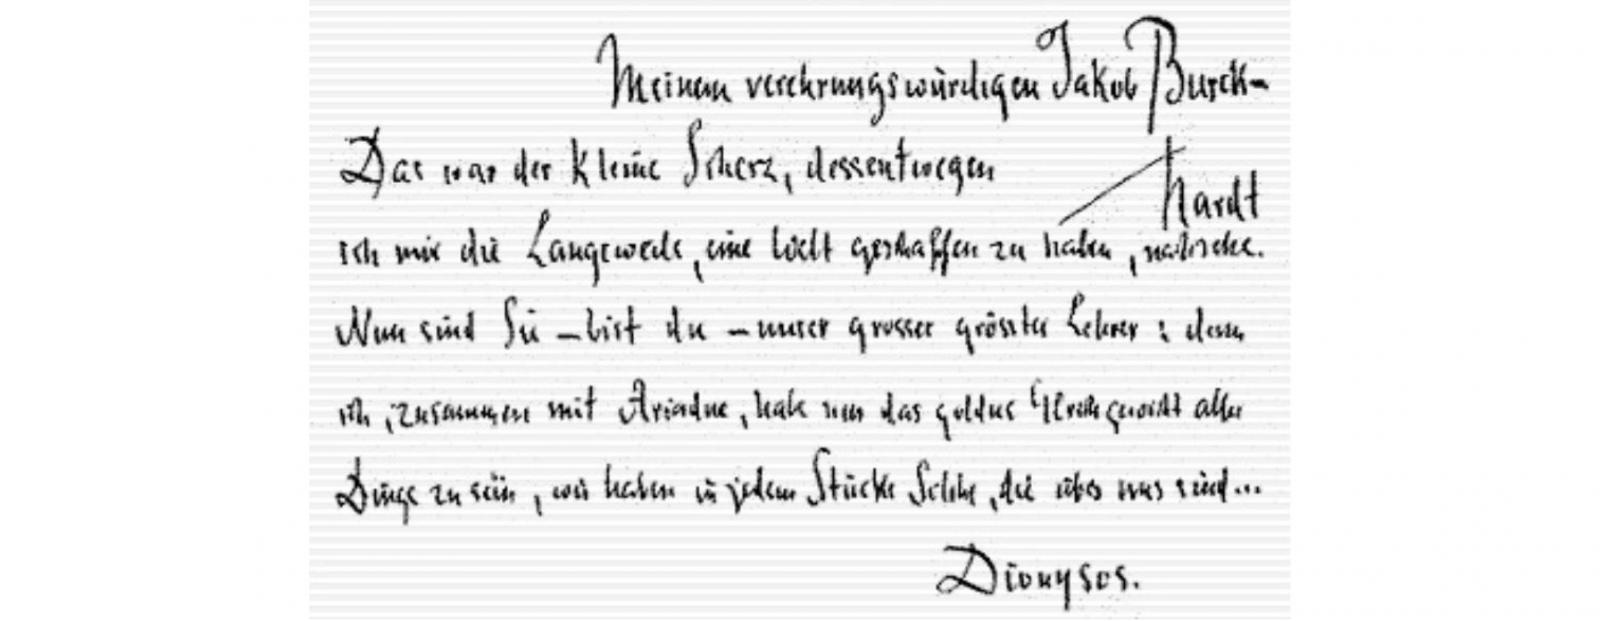 Meinem verehrungswürdigen Jakob Burck-
hardt
Das war der kleine Scherz, dessentwegen
ich mir die Langeweile, eine Welt geschaffen zu haben, nachsehe.
Nun sind Sie – bist du – unser grosser grösster Lehrer: denn
ich, zusammen mit Ariadne, habe nur das goldne Gleichgewicht aller
Dinge zu sein, wir haben in jedem Stücke Solche, die über uns sind...
Dionysos.